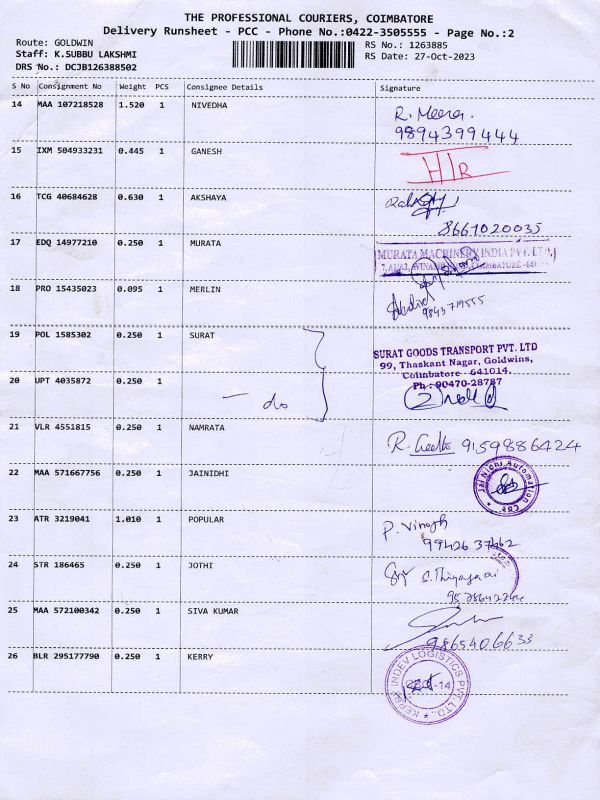 THE PROFESSIONAL COURIERS, COIMBATORE
Delivery Runsheet - PCC - Phone No.:0422-3505555 - Page No.:2
Route: GOLDWIN
Staff: K.SUBBU LAKSHMI
DRS No.: DCJB126388502
RS No.: 1263885
RS Date: 27-Oct-2023
S No Consignment No Weight PCS Consignee Details Signature
14 MAA 107218528 1.520 1 NIVEDHA
R. Meera.
9894399444
15 IXM 504933231 0.445 1 GANESH
H/R
16 TCG 40684628 0.630 1 AKSHAYA
8667020035
17 EDQ 14977210 0.250 1 MURATA
MURATA MACHINERY INDIA PVT. LTD.
18 PRO 15435023 0.095 1 MERLIN
9843719555
19 POL 1585302 0.250 1 SURAT
SURAT GOODS TRANSPORT PVT. LTD
99, Thaskant Nagar, Goldwins,
Coimbatore - 641014.
Ph : 90470-28787
20 UPT 4035872 0.250 1
- do
21 VLR 4551815 0.250 1 NAMRATA
R. Geetha 9159886424
22 MAA 571667756 0.250 1 JAINIDHI
Jai Nidhi Automation
23 ATR 3219041 1.010 1 POPULAR
P. Vinoth
9942637462
24 STR 186465 0.250 1 JOTHI
25 MAA 572100342 0.250 1 SIVA KUMAR
9865406633
26 BLR 295177790 0.250 1 KERRY
KERRY INDEV LOGISTICS PVT. LTD.,
-14